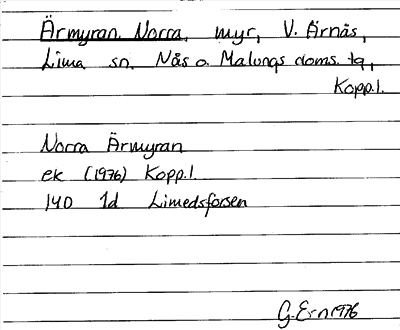 Ärmyran, Norra, myr, V. Ärnäs,
Lima sn. Nås o. Malungs doms. tg,
Kopp.l.
Norra Ärmyran
ek (1976) Kopp.l.
14D 1d Limedsforsen
G.Ern 1976